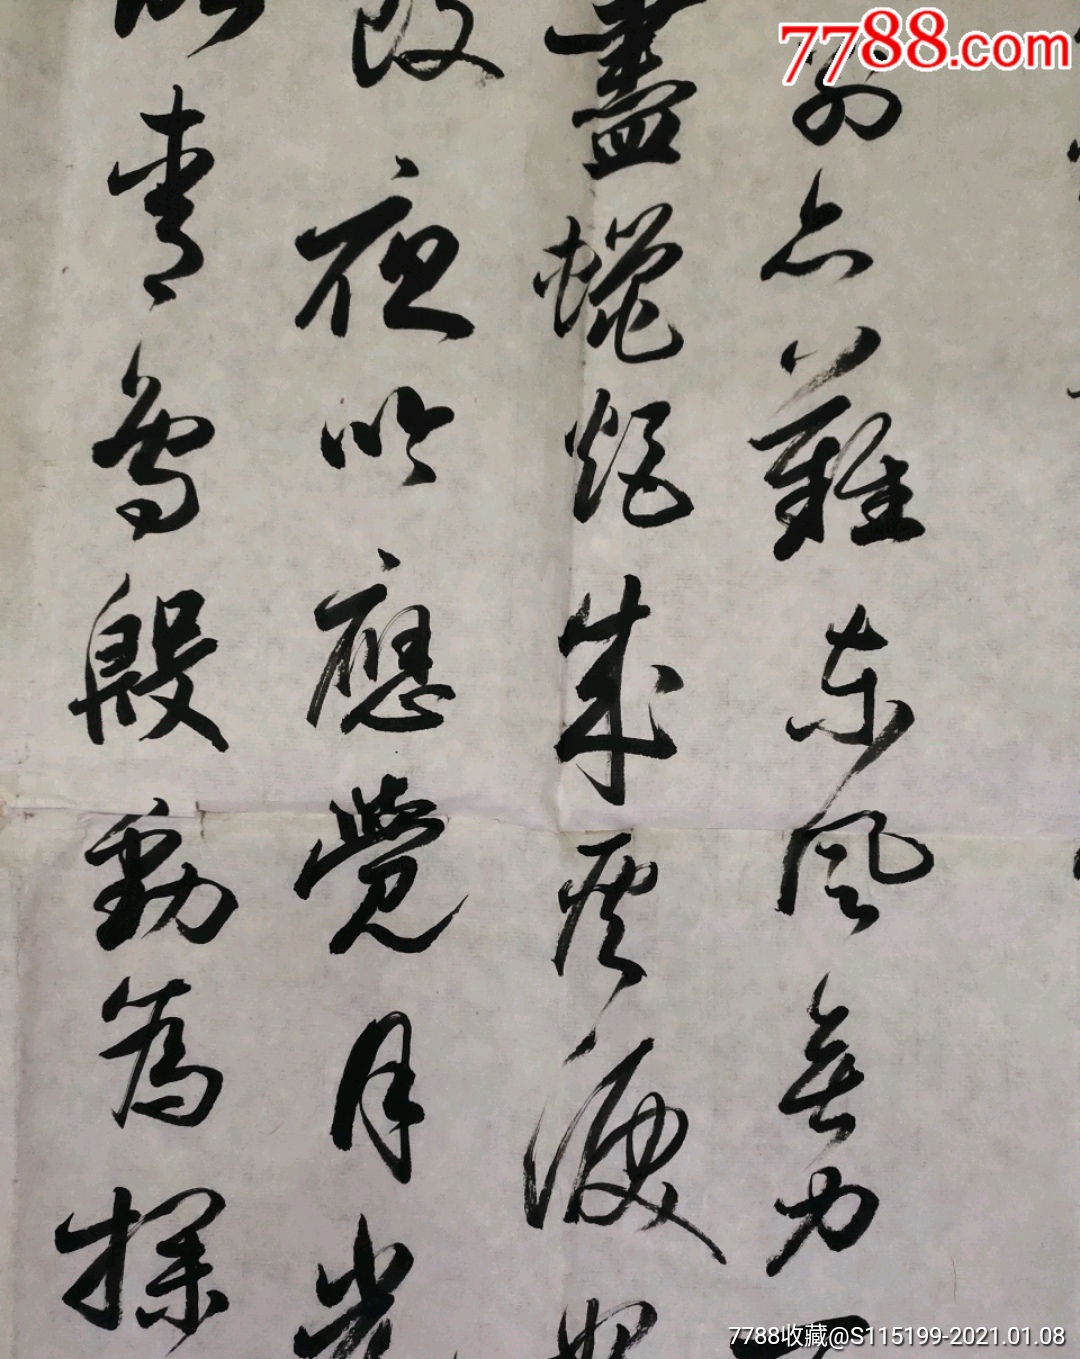 7788.com
別亦難東風無力百
盡蠟炬成灰淚始
改夜吟應覺月光
青鳥殷勤為探
7788收藏@S115199-2021.01.08